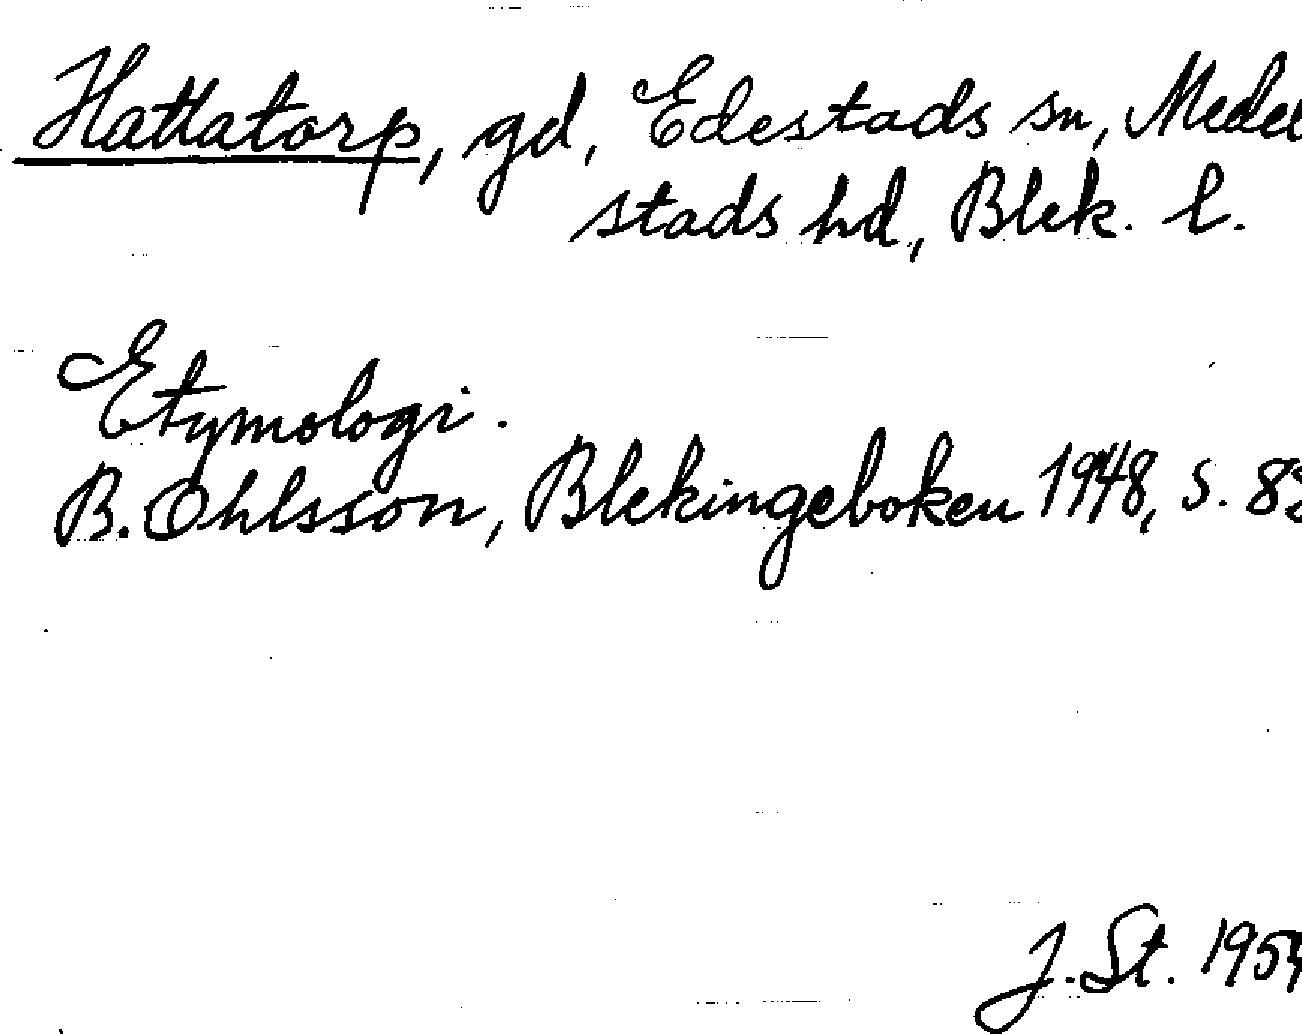 Hattatorp, gd, Edestads sn, Medel
stads hd, Blek. l.
Etymologi.
B. Ohlsson, Blekingeboken 1948, s.
J. St.